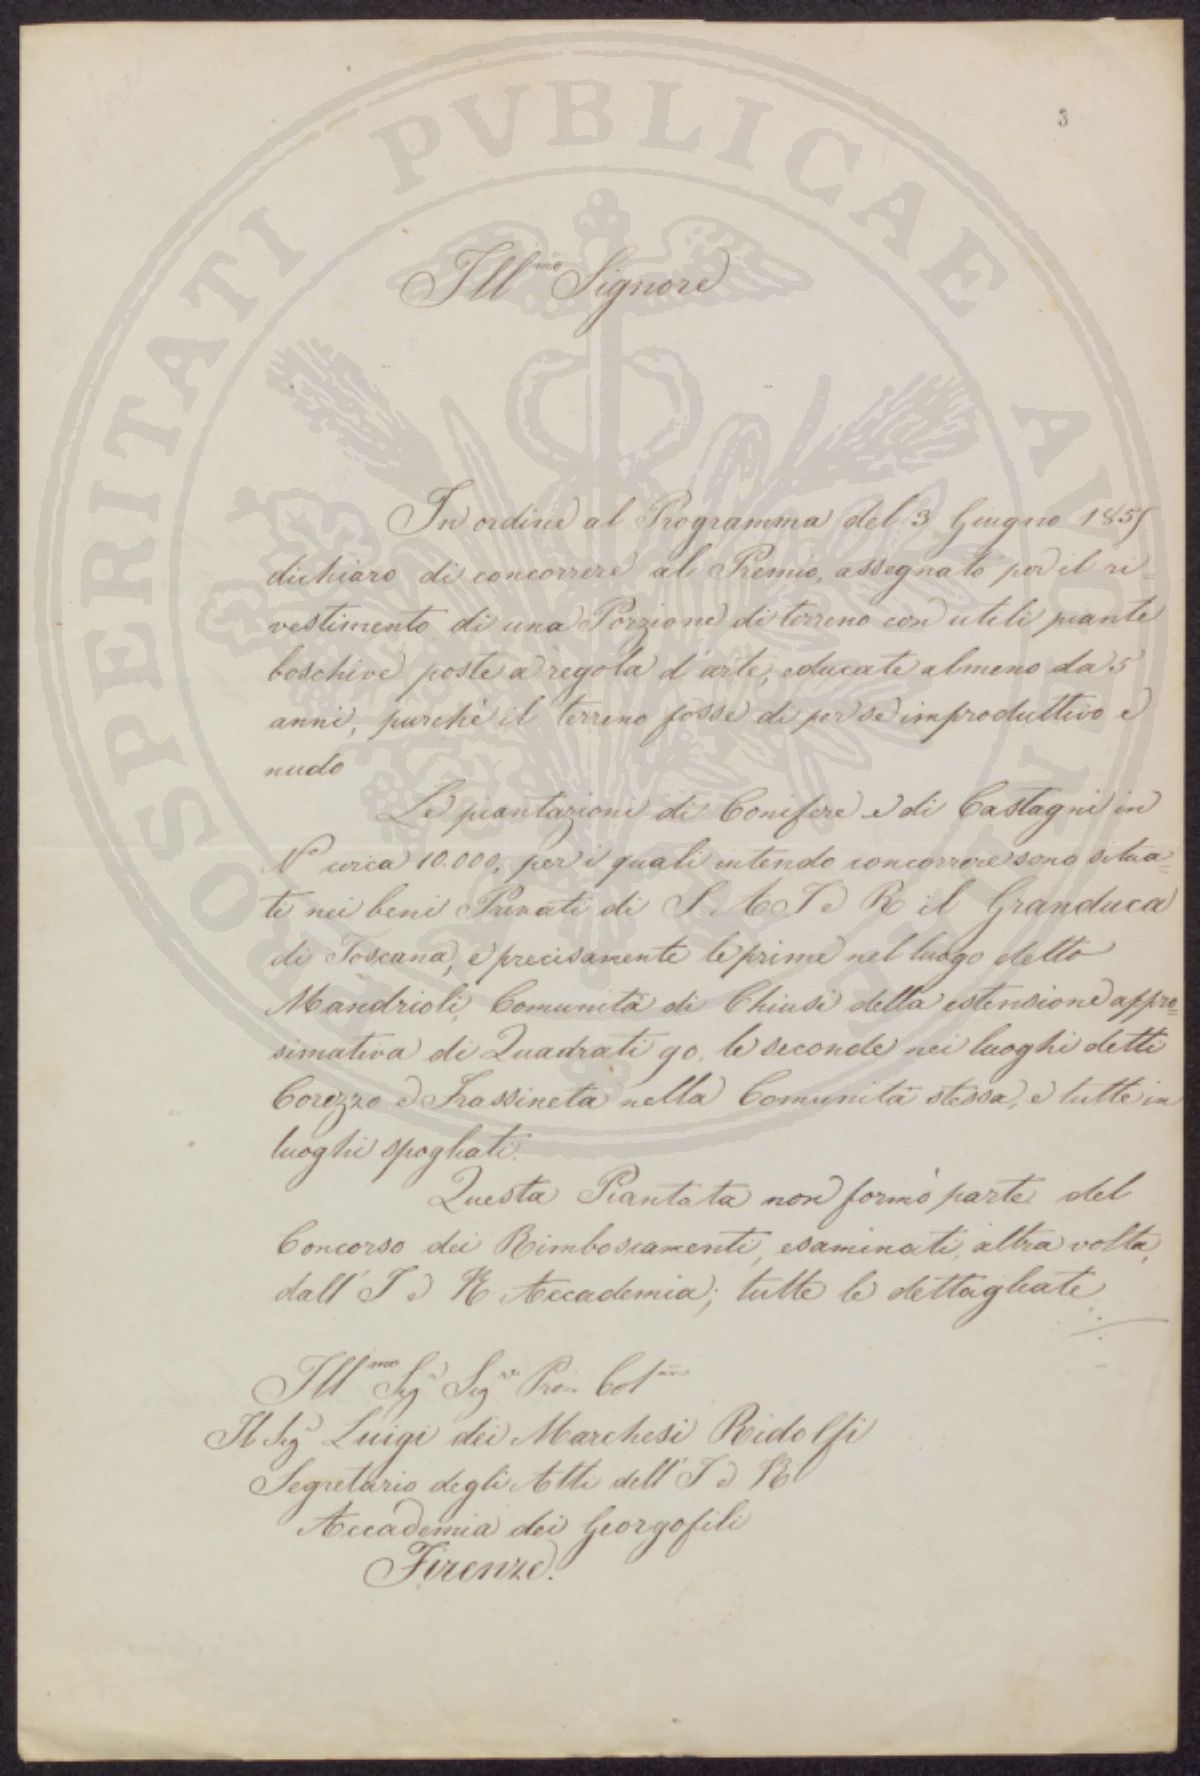 3
PROSPERITATI PVBLICAE AVGENDAE
Ill.mo Signore
In ordine al Programma del 3 Giugno 185
dichiaro di concorrere al Premio, assegnato per il ri=
vestimento di una Porzione di terreno con utili piante
boschive poste a regola d'arte, educate almeno da 5
anni, purchè il terreno fosse di per se improduttivo e
nudo
Le piantazioni di Conifere e di Castagni in
No circa 10.000, per i quali intendo concorrere sono situa=
ti nei beni Privati di S. A I e R il Granduca
di Toscana, e precisamente le prime nel luogo detto
Mandrioli, Comunità di Chiusi della estensione appro=
simativa di Quadrati 90. le seconde nei luoghi detti
Corezzo e Frassineta nella Comunità stessa, e tutte in
luoghi spogliati.
Questa Piantata non formò parte del
Concorso dei Rimboscamenti, esaminati, altra volta,
dall' I e R Accademia; tutte le dettagliate
Ill.mo Sig.r Sig.r Pron Col.mo
Il Sig.r Luigi dei Marchesi Ridolfi
Segretario degli Atti dell' I e R
Accademia dei Georgofili
Firenze.